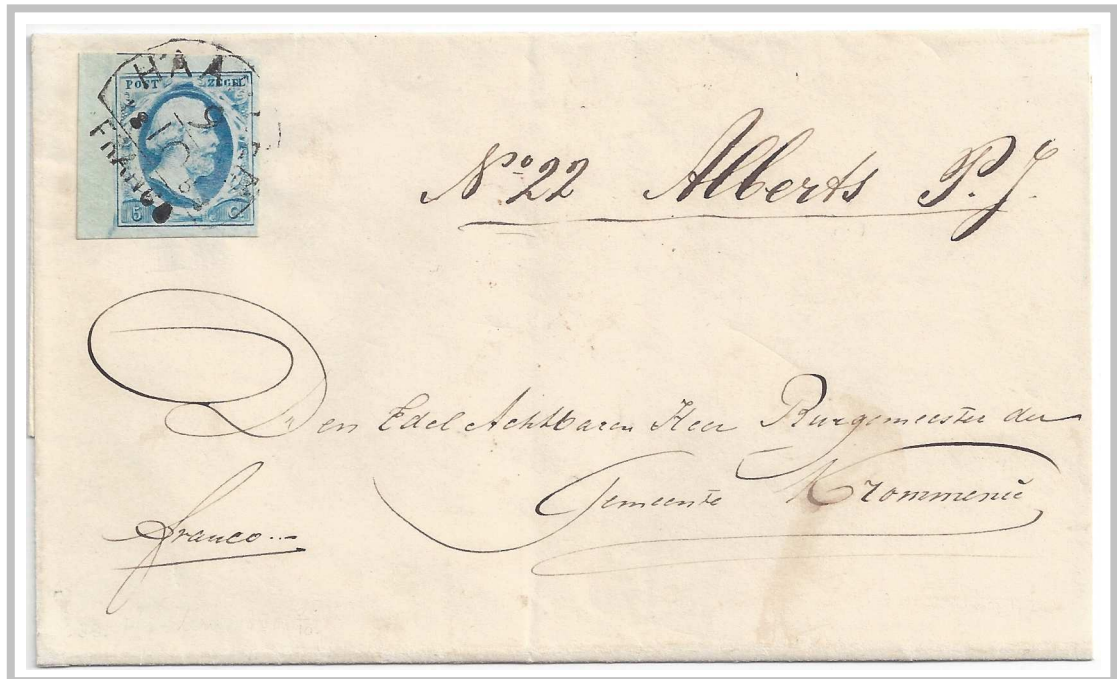 POST ZEGEL
5
HAA
FRANCO
Nº 22 Alberts P. J.
Den Edel Achtbaren Heer Burgemeester der
Gemeente Krommenie
franco